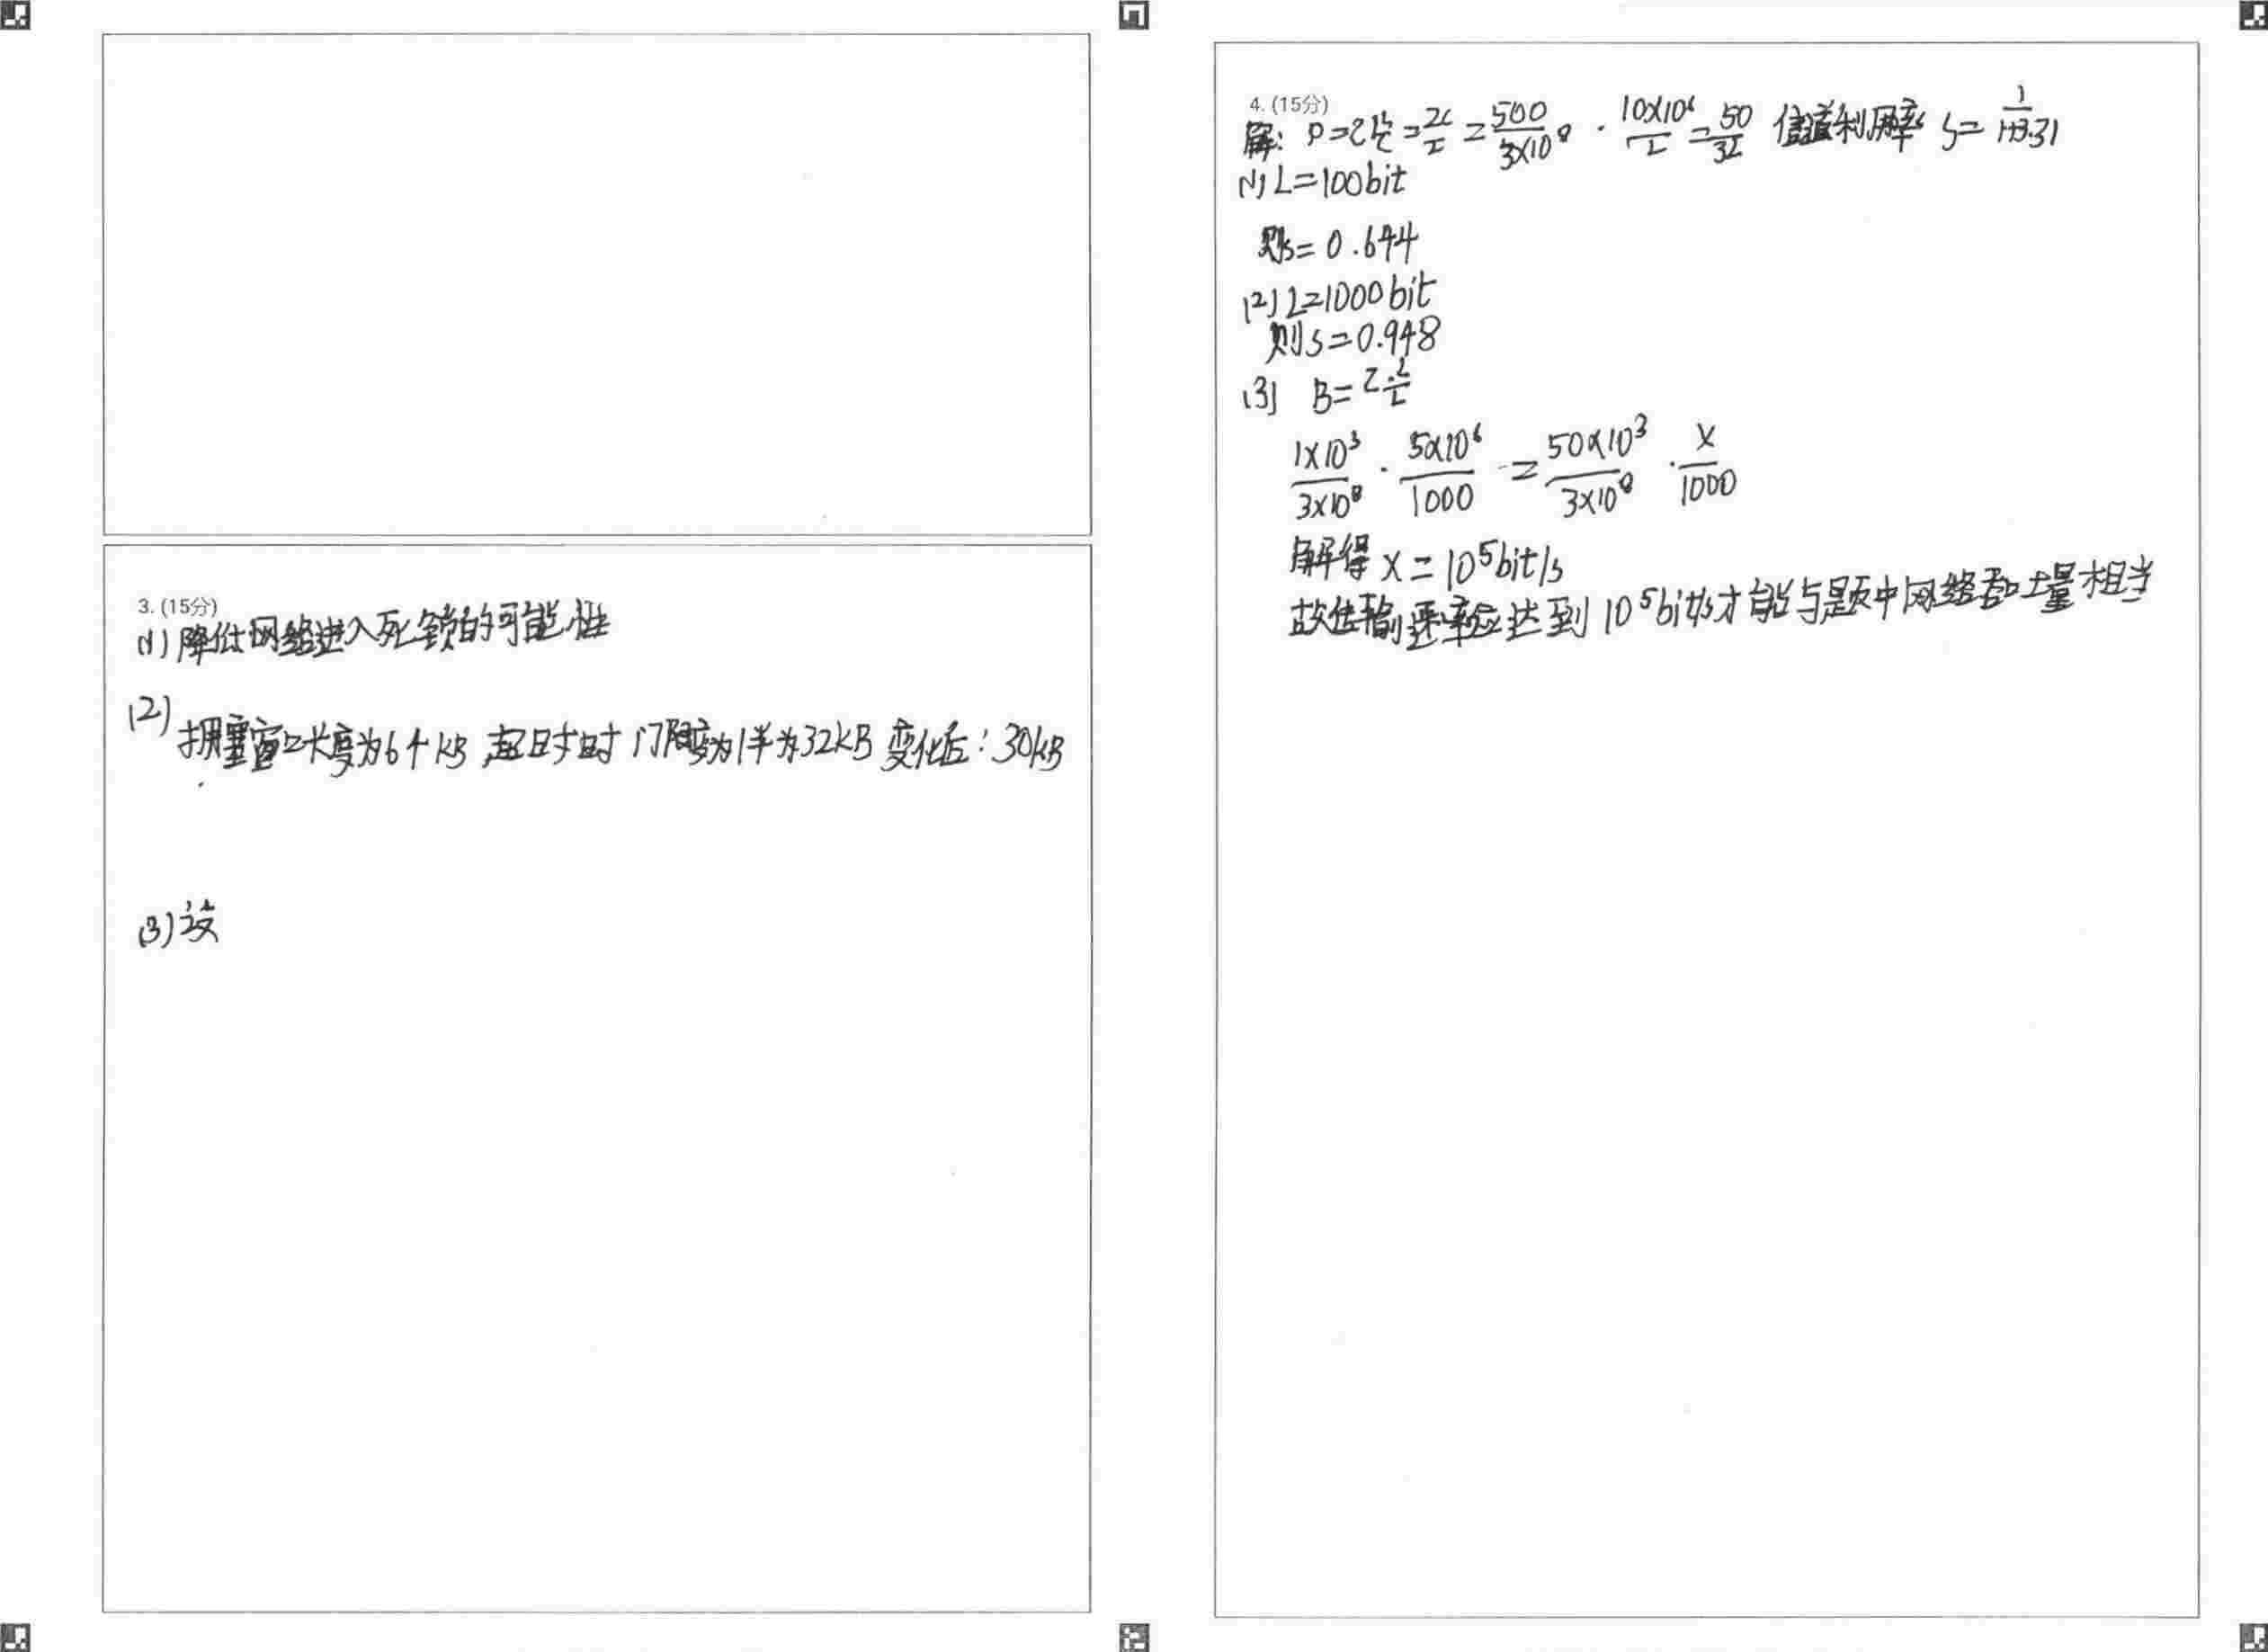 3. (15分)
(1) 降低网络进入死锁的可能性
(2) 拥塞窗口长度为64KB,超时时 门限变为1半为32KB 变化后:30KB
(3) 设
4. (15分)
解: = 500/3×10⁸ · 10×10⁶/L = 50/3L 信道利用率 S= 1/1+3.31
(1) L=100bit
则s= 0.644
(2) L=1000bit
则s=0.948
(3) B=
1×10³/3×10⁸ · 5×10⁶/1000 = 50×10³/3×10⁸ · X/1000
解得 X = 10⁵bit/s
故传输速率应达到 10⁵bit/s才能与题中网络吞吐量相当